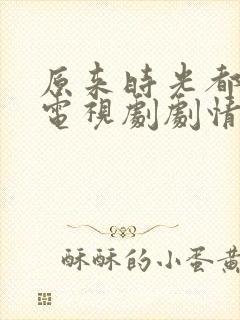 原来時光都
電視劇劇情
酥酥的小蛋黃